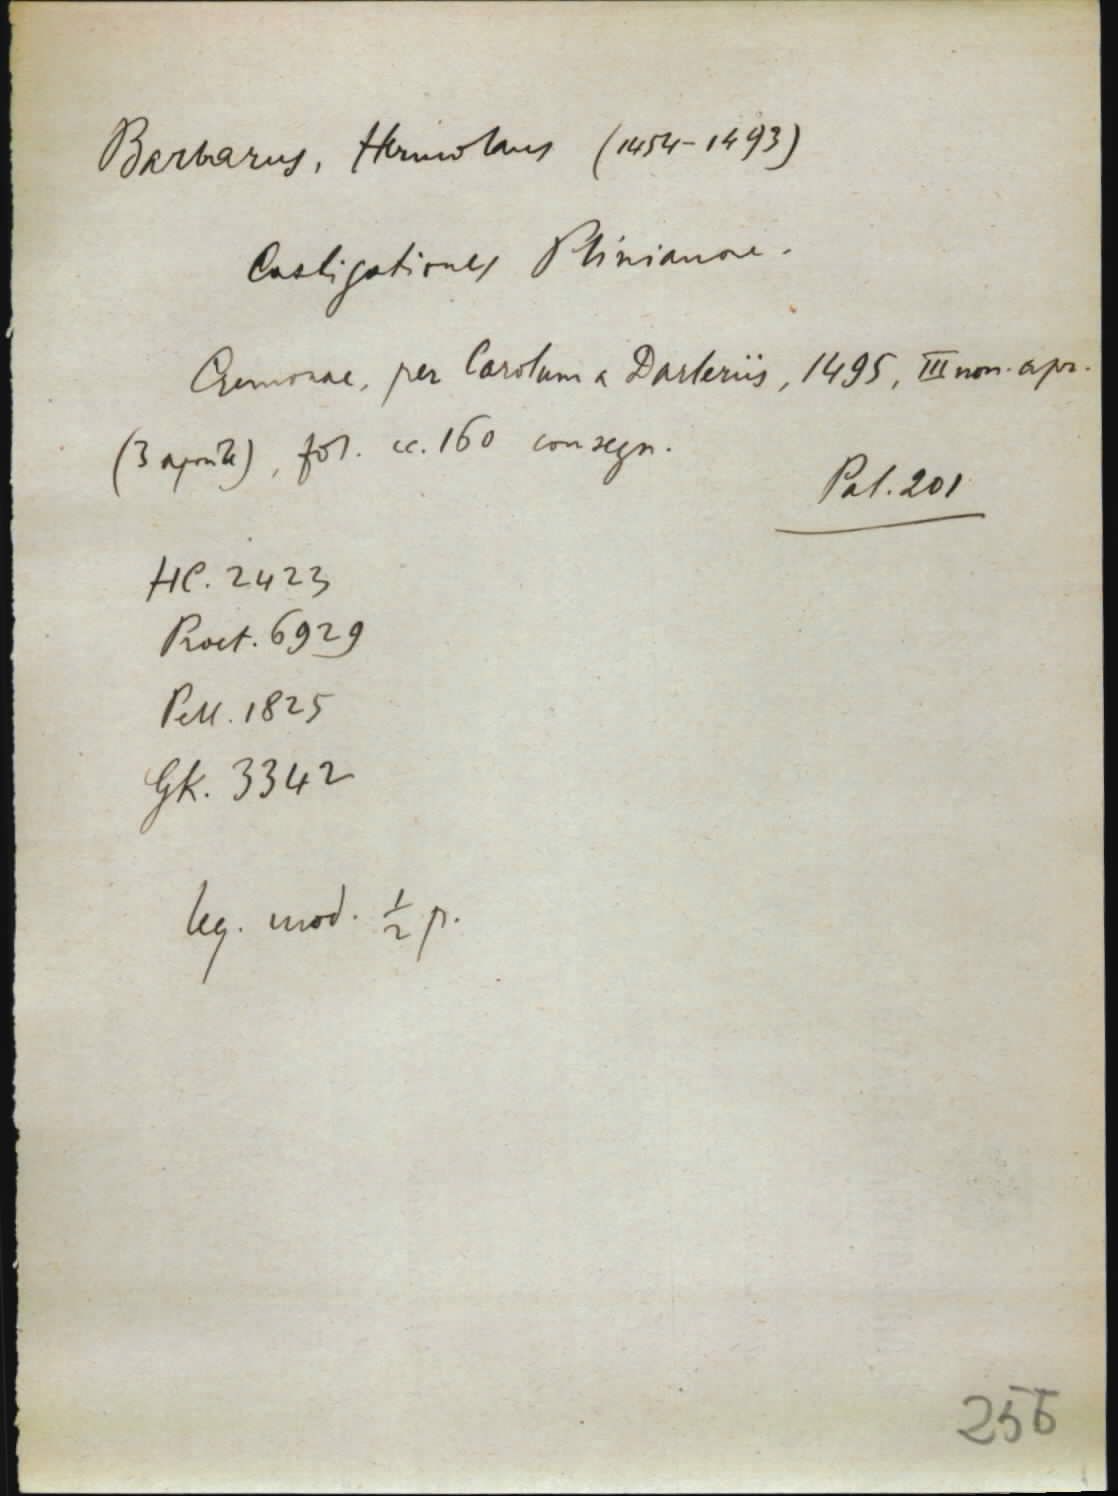 Barbarus, Hermolaus (1454-1493)
Castigationes Plinianae.
Cremonae, per Carolum a Darleriis, 1495, III non. apr.
(3 aprile), fol. cc. 160 consegn.
Pal. 201
HC. 2423
Proct. 6929
Pell. 1825
GK. 3342
leg. mod. 1/2 p.
256